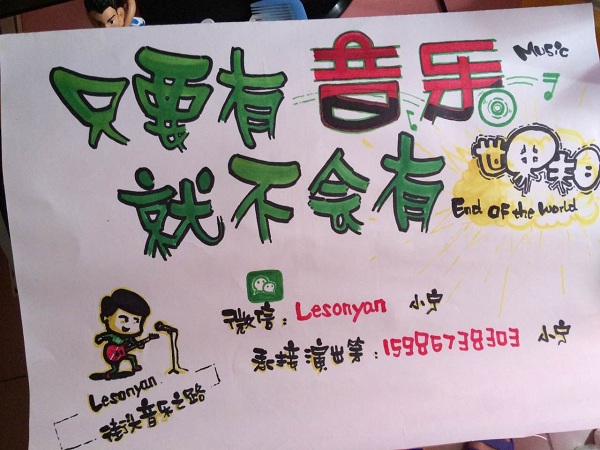 只要有音乐 Music
就不会有世界末日
End of the World
微信：Lesonyan 小宁
承接演出等：15986738303 小宁
Lesonyan
街头音乐之路